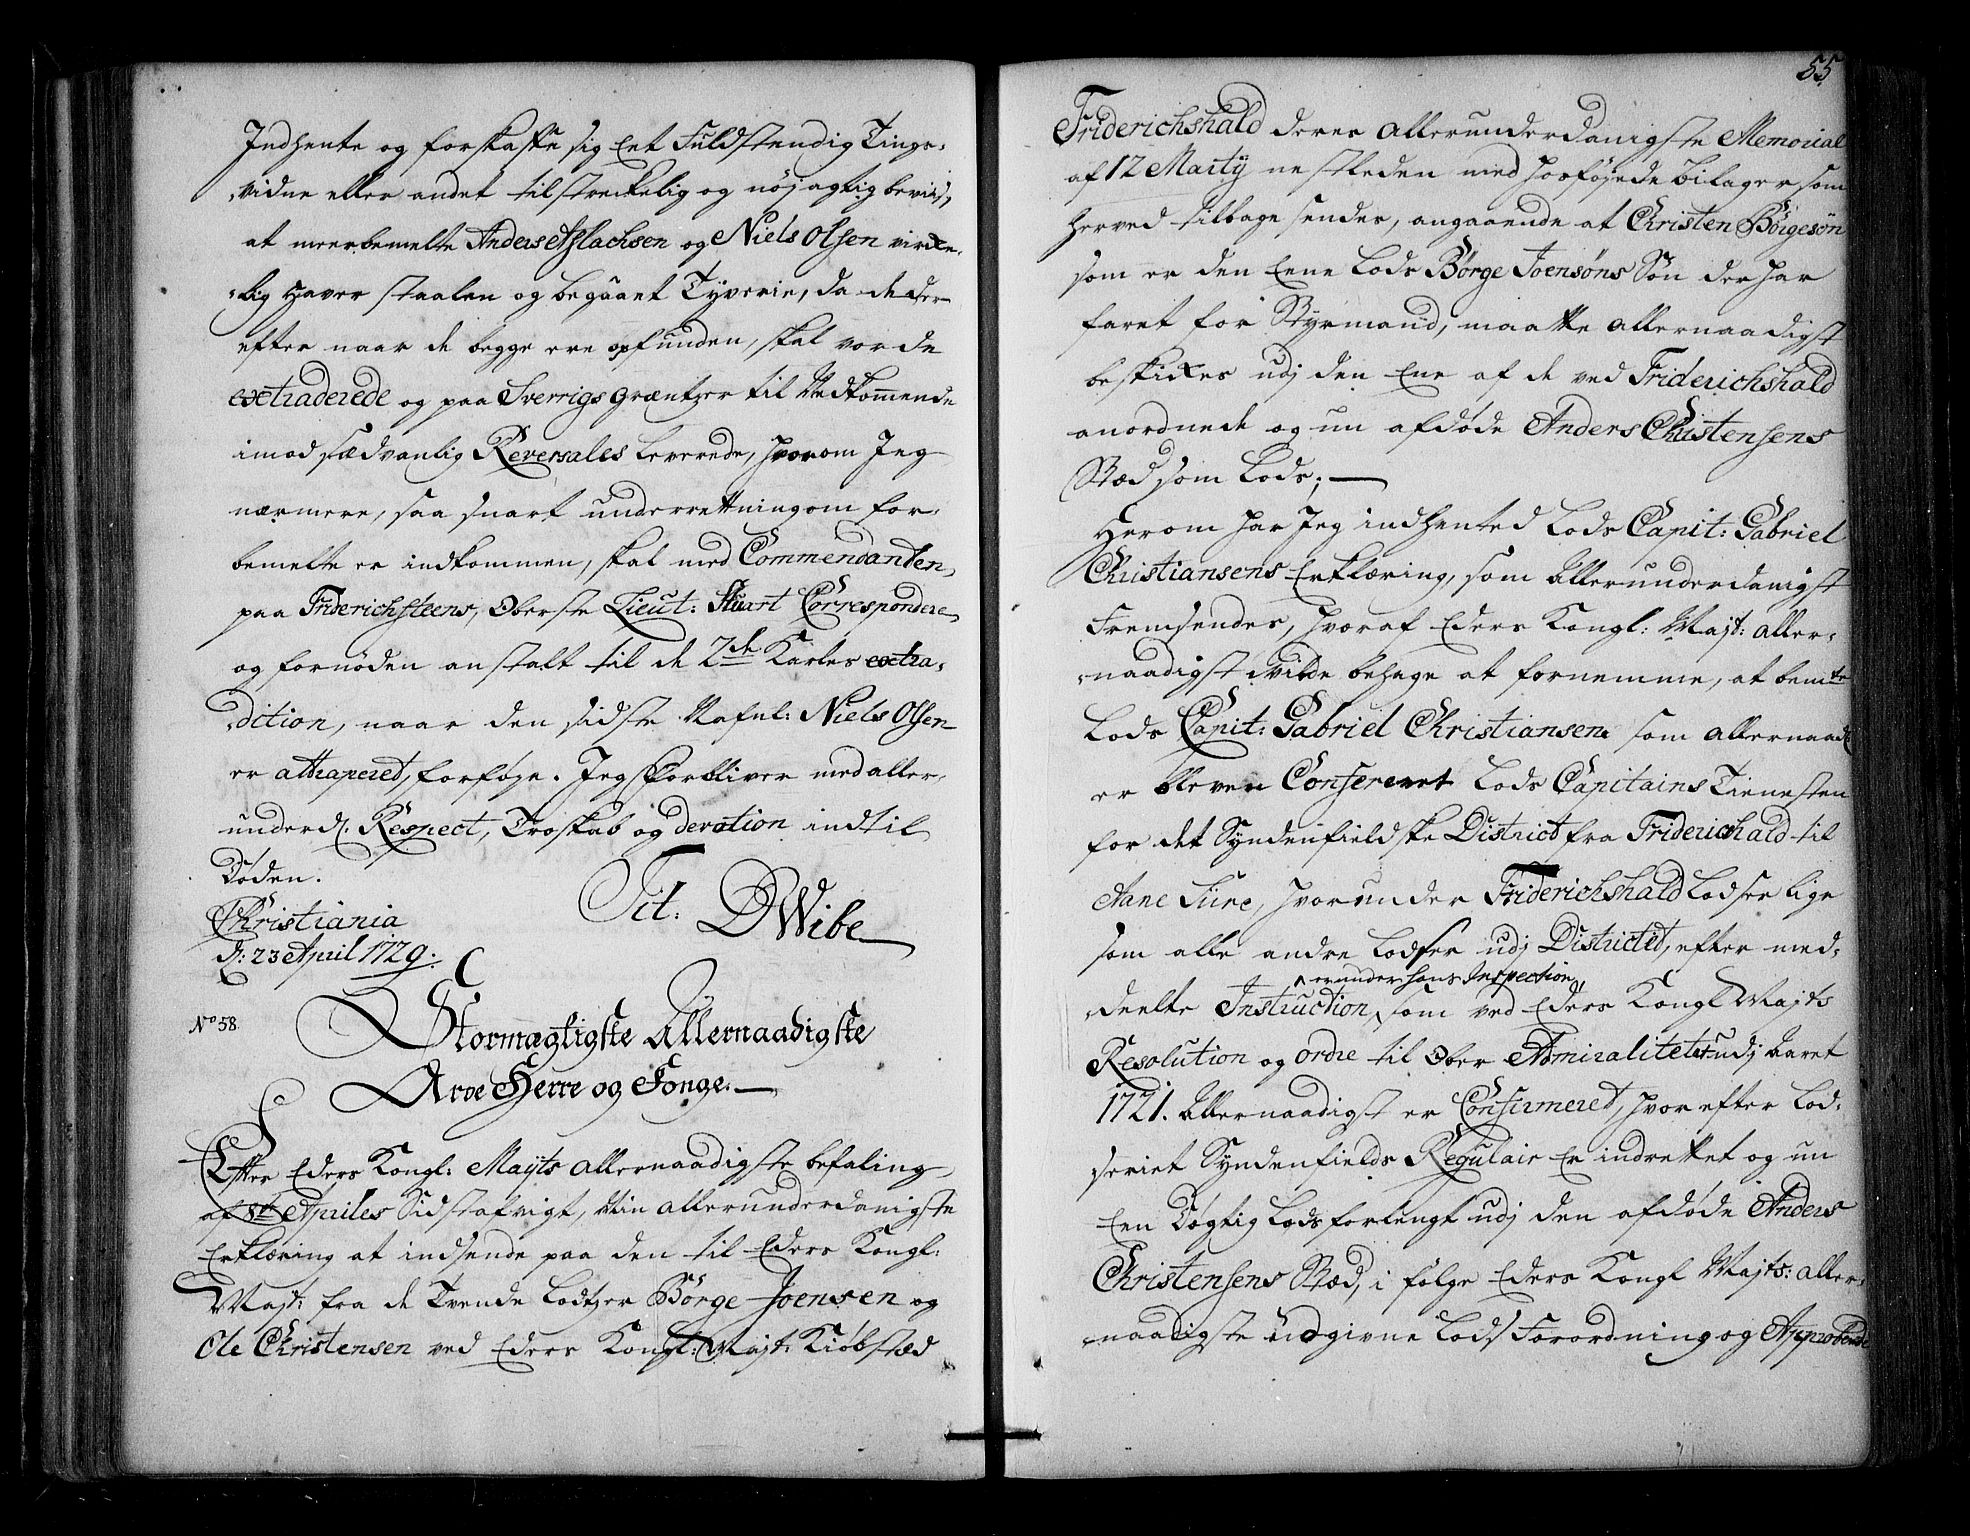 Indhente og forskaffe sig Eet Fuldstendig Tings-
vidne eller andet tilstreckelig og nöjagtig beviis,
at meerbemelte Anders Aslachsen og Niels Olsen virke-
lig haver staalen og begaaet Tyverie, da de der-
efter naar de begge ere opfunden, skal vorde
extraderede og paa Sverrigs Græntzer til Vedkommende
imod sædvanlig Reversales leverede, hvorom Jeg
nærmere, saa snart underretning om for-
bemelte er indkommen, skal med Commendanten
paa Friderichsteens, Oberste Lieut: Stuart Correspondere
og fornöden anstalt til de 2de Karles extra-
dition, naar den sidste Nafnl: Niels Olsen
er attraperet, forföye. Jeg forbliver med aller-
underd. Respect, Troskab og devotion indtil
Döden.
Christiania
d: 23 April 1729.
Tit: DWibe
No 58.
Stormægtigste Allernaadigste
Arve Herre og Konge.
Efter Eders Kongl: Mayts allernaadigste befaling
af 8de Apriles Sidstafvigt, Min allerunderdanigste
Erklæring at indsende paa den til Eders Kongl:
Mayt: fra de Tvende Lodtzer Börge Joensen og
Ole Christensen ved Eders Kongl: Mayt: Kiöbstæd
55
Friderichshald deres allerunderdanigste Memorial
af 12 Marty nestleden med hosföjede bilager som
herved tilbage sendes, angaaende at Christen Börgesön
som er den Eene Lods Börge Joensöns Sön der har
faret for Styrmand, maatte allernaadigst
beskikes udj den Ene af de ved Friderichshald
anordnede og nu afdöde Anders Christensens
Stæd som Lods;
Herom har Jeg indhented Lods Capit: Gabriel
Christiansens Erklæring, som Allerunderdanigst
Fremsendes, hvoraf Eders Kongl: Mayt: aller-
naadigst vilde behage at fornemme, at bemte
Lods Capit: Gabriel Christiansen som allernaadl
er bleven Confereret Lods Capitains Tienesten
for det Syndenfieldske District fra Friderichshald til
Aane Siire, hvorunder Friderichshald Lodser lige
som alle andre Lodser udj Districtet, efter med-
deelte Instruction, er under hans Inspection, som ved Eders Kongl Mayts
Resolution og ordre til Ober Admiralitetet udj Aaret
1721. Allernaadigst er Confirmeret, hvorefter Lod-
seriet Syndenfields Regulair Er indrettet og nu
Een Dögtig Lods forlengt udj den afdöde Anders
Christensens Stæd, i fölge Eders Kongl Mayts: aller-
naadigste udgivne Lods Forordning og Approberede